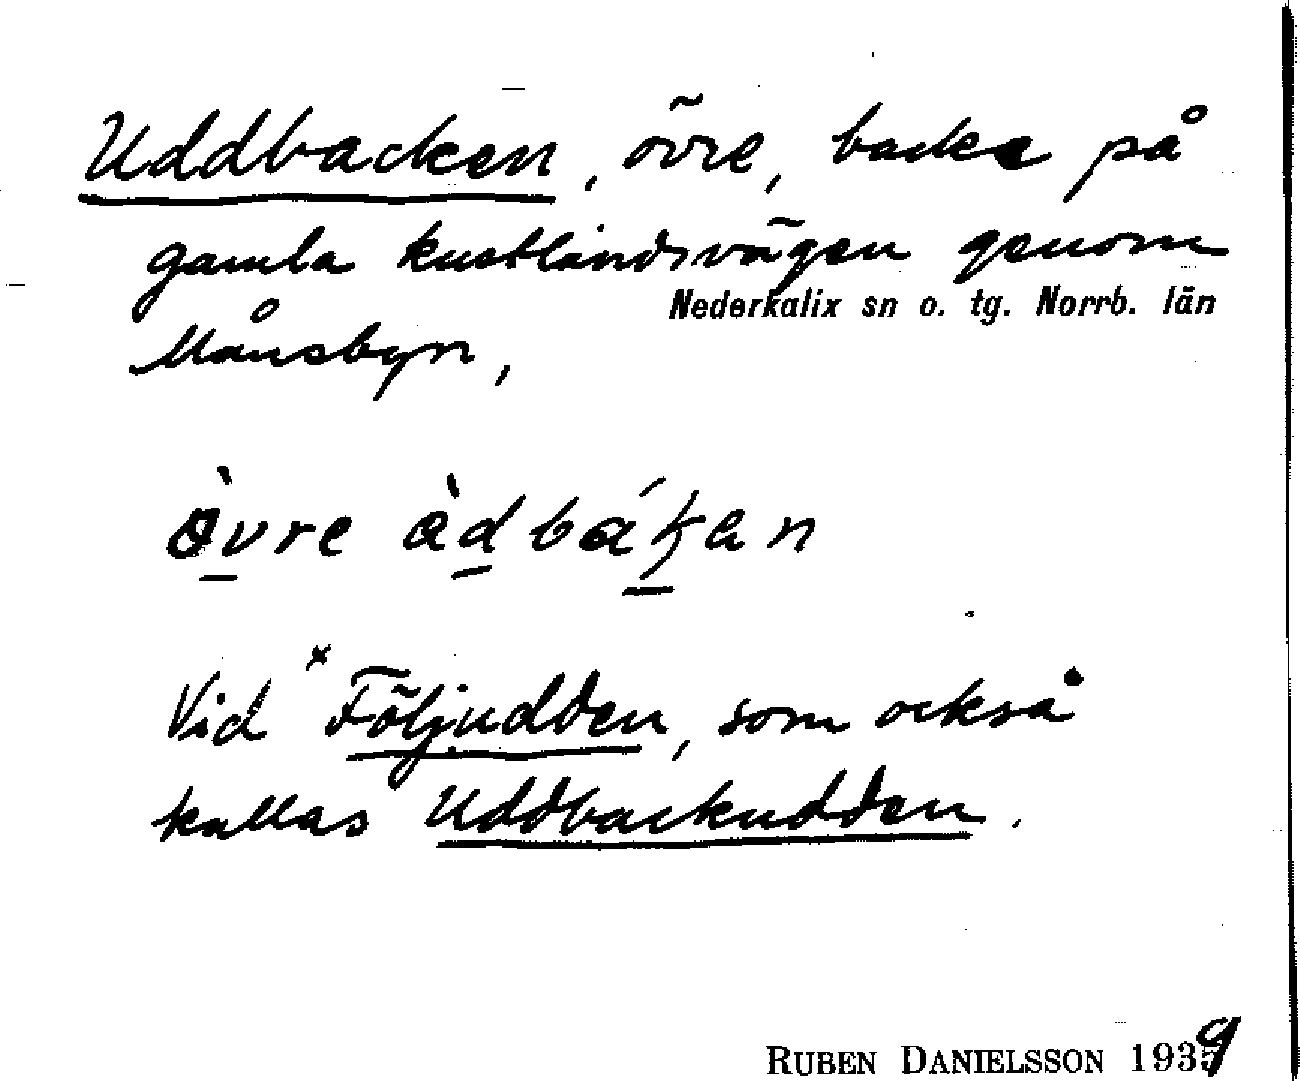 Uddbacken, övre, backe på
gamla kustlandsvägen genom
Nederkalix sn o. tg. Norrb. län
Månsbyn,
òvre àdbákan
Vid ˣFöljudden, som också
kallas Uddbackudden.
RUBEN DANIELSSON 1939